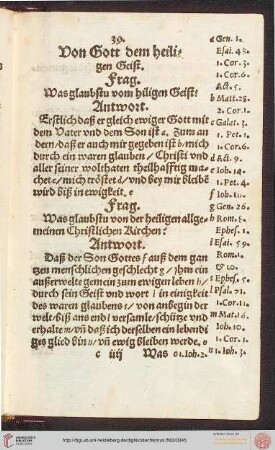 39.
Von Gott dem heili-
gen Geist.
Frag.
Was glaubstu vom hiligen Geist?
Antwort.
Erstlich daß er gleich ewiger Gott mit
dem Vater vnd dem Son ist a. Zum an
dern/daß er auch mir gegeben ist b/mich
durch ein waren glauben c/ Christi vnd
aller seiner wolthaten theilhafftig ma
chet c/mich tröstet d/vnd bey mir bleibē
wird biß in ewigkeit. e
Frag.
Was glaubstu von der heiligen allge-
meinen Christlichen Kirchen?
Antwort.
Daß der Son Gottes f auß dem gan
tzen menschlichen geschlecht g/jhm ein
außerwelte gemein zum ewigen leben h/
durch sein Geist vnd wort i in einigkeit
des waren glaubens k/von anbegin der
welt/biß ans end l versamle/schütze vnd
erhalte m/vñ daß ich derselben ein lebendi
ges glied bin n/vñ ewig bleiben werde. o
c iiij Was
a Gen. 1.
Esai. 48.
1. Cor. 3.
1. Cor. 6.
Act. 5.
b Matt. 28.
2. Cor.
c Galat. 3.
1. Pet. 1.
1. Cor. 6.
d Act. 9.
e Joh. 14.
1. Pet. 4.
f Joh. 10.
g Gen. 26.
h Rom. 8.
Ephes. 1.
i Esai. 59.
Rom. 1.
& 10.
k Ephes. 5.
l Psal. 71.
1. Cor. 11.
m Mat. 16.
Joh. 10.
1. Cor. 1.
n 1. Joh. 3.
o 1. Joh. 2.